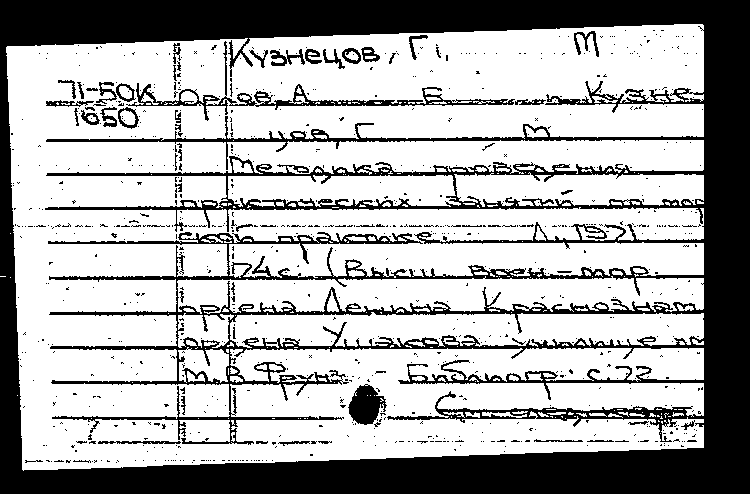 Кузнецов, Г. М
71-50К Орлов, А Б и Кузне-
1650
цов, Г М
Методика проведения
практических занятий по мор
ской практике. Л., 1971
74с. (Высш. воен-мор.
ордена Ленина Краснознам
ордена Ушакова училище
М. В Фрунз - Библиогр: с. 72
См. след. карт